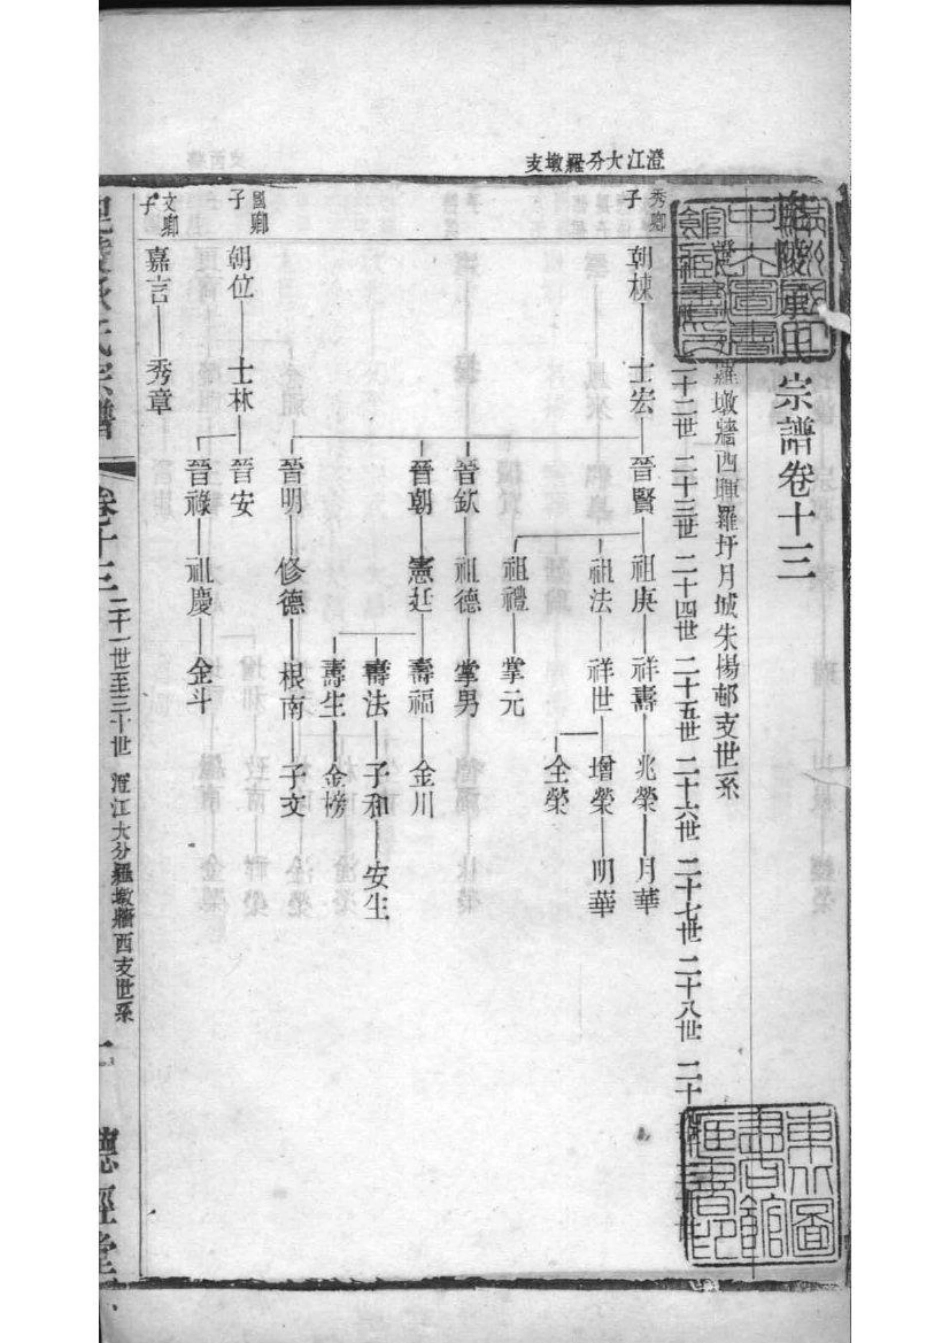 澄江大分羅墩支
毘陵承氏宗譜卷十三
羅墩牆西暉羅圩月城朱楊邨支世系
二十二世 二十三世 二十四世 二十五世 二十六世 二十七世 二十八世 二十
秀卿子 朝棟 士宏 晉賢 祖庚 祥壽 兆榮 月華
祖法 祥世 增榮 明華
全榮
祖禮 掌元
晉欽 祖德 掌男
晉朝 憲廷 壽福 金川
壽法 子和 安生
壽生 金榜
晉明 修德 根南 子文
國卿子 朝位 士林 晉安
晉祿 祖慶 金斗
文卿子 嘉言 秀章
毘陵承氏宗譜 卷十三 二十一世至三十世 澄江大分羅墩牆西支世系 一 德經堂